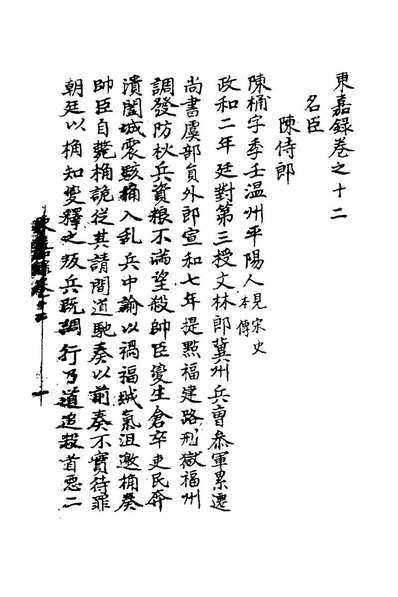 東嘉錄卷之十二
名臣
陳侍郎
陳桷字季壬温州平陽人見宋史本傳
政和二年廷對第三授文林郎冀州兵曹叅軍累遷
尚書虞部員外郎宣和七年提㸃福建路刑獄福州
調發防秋兵資粮不滿望殺帥臣變生倉卒吏民奔
潰闔城震駭桷入乱兵中諭以禍福賊氣沮邀桷奏
帥臣自斃桷詭從其請間道馳奏以前奏不實待罪
朝廷以桷知變釋之叛兵既調行乃道追殺首惡二
東嘉錄卷十二
一